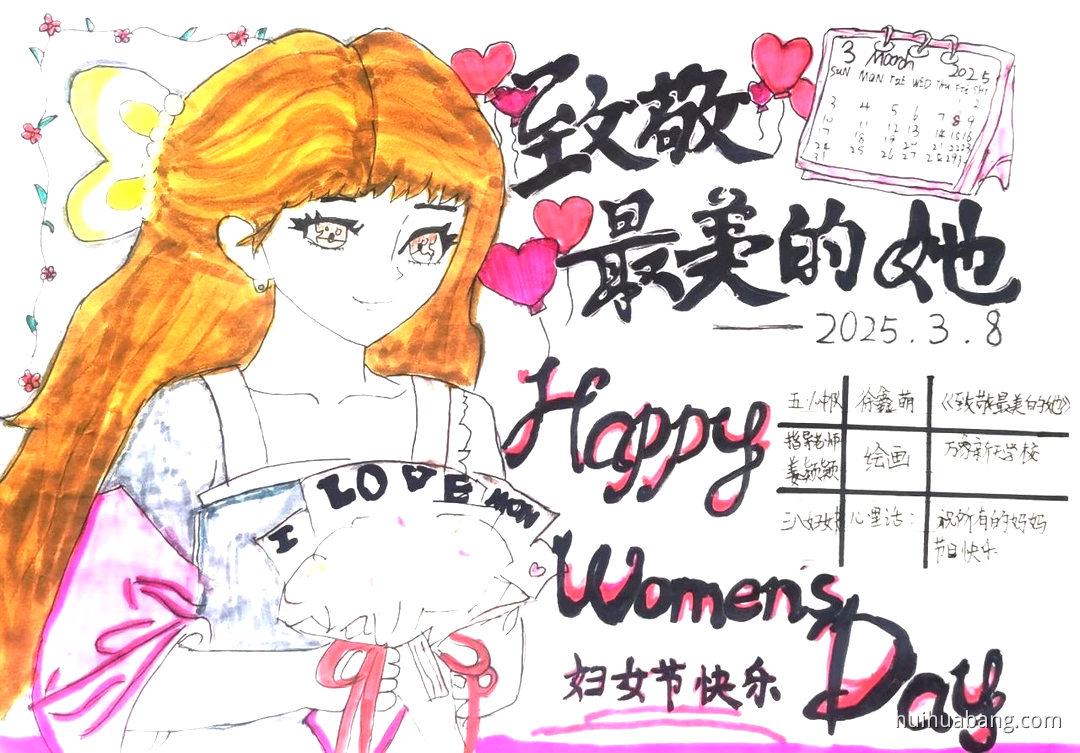 致敬
最美的她
——2025.3.8
3 March 2025
SUN MON TUE WED THU FRI SAT
1 2
3 4 5 6 7 8 9
10 11 12 13 14 15 16
17 18 19 20 21 22 23
24 25 26 27 28 29 3
31
I LOVE MOM
Happy
Women's
Day
妇女节快乐
徐鑫萌 《致敬最美的她》
指导老师 绘画
姜颖颖
三八妇女 心里话： 祝所有的妈妈
节日快乐
huihuabang.com